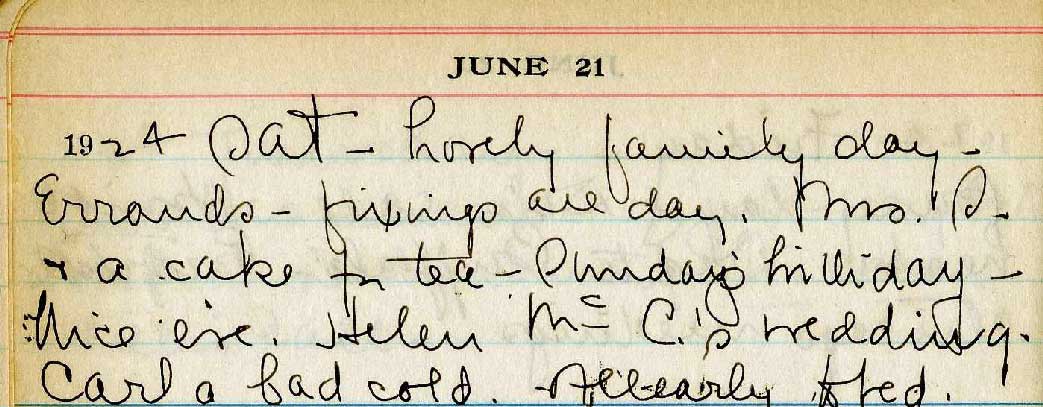 JUNE 21
1924 Sat - Lovely family day -
Errands - fixings all day. Mrs. S.
+ a cake for tea - Sunday's birthday -
Nice eve. Helen Mc C.'s wedding.
Carl a bad cold. All early to bed.